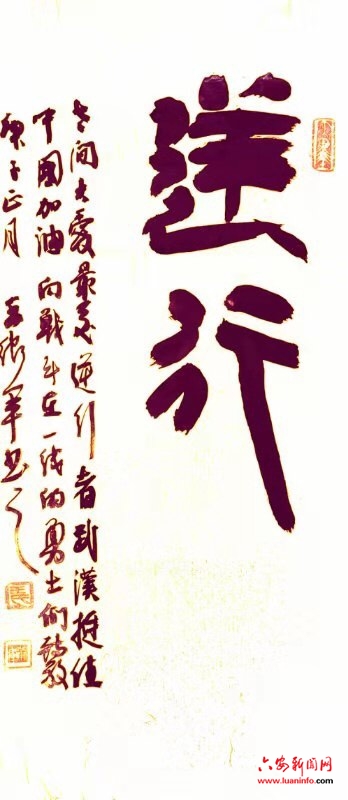 逆行
世间大爱最美逆行者武漢挺住
中国加油向戰斗在一线的勇士们致敬
庚子正月 书之
六安新闻网
www.luaninfo.com